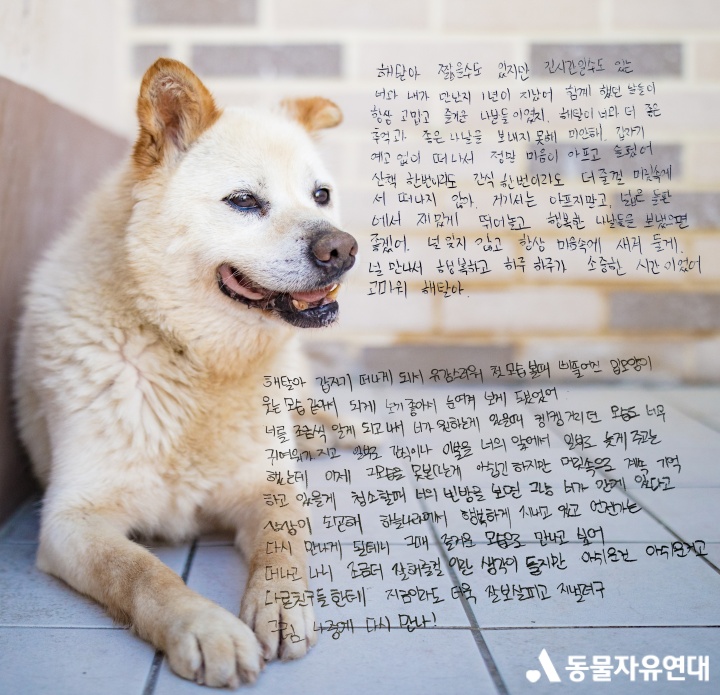 해달아 짧을수도 있지만 긴시간일수도 있는
너와 내가 만난지 1년이 지났어 함께 했던 날들이
항상 고맙고 즐거운 나날들이였지. 해달이 너와 더 좋은
추억과 좋은 나날을 보내지 못해 미안해. 갑자기
예고 없이 떠나서 정말 마음이 아프고 슬펐어
산책 한번이라도 간식 한번이라도 더 줄껄 머릿속에
서 떠나지 않아. 거기서는 아프지말고, 넓은 들판
에서 재밌게 뛰어놀고 행복한 나날들을 보냈으면
좋겠어. 널 잊지 않고 항상 마음속에 새겨 둘게.
널 만나서 행복하고 하루 하루가 소중한 시간이였어
고마워 해달아.
해달아 갑자기 떠나게 되서 유감스러워 첫 모습 볼때 삐뚤어진 입모양이
웃는 모습 같아서 되게 보기 좋아서 눈여겨 보게 되었었어
너를 조금씩 알게 되고나서 너가 원하는게 있을때 킹킹 거리던 모습도 너무
귀여워가지고 일부로 간식이나 이불을 너의 앞에서 일부로 늦게 주고는
했는데 이제 그모습을 못본다는게 아쉽긴 하지만 머릿속으로 계속 기억
하고 있을게 청소할때 너의 빈방을 보면 그냥 너가 안에 있다고
상상이 도곤해 하늘나라에서 행복하게 지내고 있고 언젠가는
다시 만나게 될테니 그때 즐거운 모습으로 만나고 싶어
떠나고 나니 조금더 잘해줄걸 이란 생각이 들지만 아쉬운건 아쉬운거고
다른친구들한테 지금이라도 더욱 잘보살피고 지낼려구
그럼 나중에 다시 만나!
동물자유연대